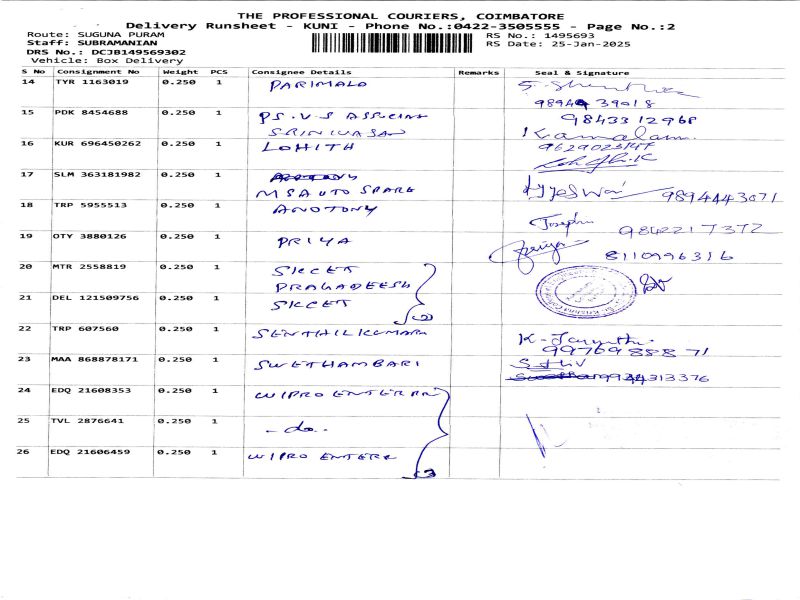 THE PROFESSIONAL COURIERS, COIMBATORE
Delivery Runsheet - KUNI - Phone No.:0422-3505555 - Page No.:2
Route: SUGUNA PURAM
RS No.: 1495693
Staff: SUBRAMANIAN
RS Date: 25-Jan-2025
DRS No.: DCJB149569302
Vehicle: Box Delivery
S No Consignment No Weight PCS Consignee Details Remarks Seal & Signature
14 TYR 1163019 0.250 1 PARIMALA
98944 39018
15 PDK 8454688 0.250 1 PS.V.S ASSOCIAT 9843312968
SRINIVASAN Kamalam
16 KUR 696450262 0.250 1 LOHITH
17 SLM 363181982 0.250 1
MSAUTO SPARE 9894443071
18 TRP 5955513 0.250 1 ANOTONY
Joseph 9842217372
19 OTY 3880126 0.250 1 PRIYA Priya
8110996316
20 MTR 2558819 0.250 1 SKCET
PRAGADEESH
21 DEL 121509756 0.250 1 SKCET
(2)
22 TRP 607560 0.250 1 SENTHILKUMAR
9976988871
23 MAA 868878171 0.250 1 SWETHAMBARI
9944313376
24 EDQ 21608353 0.250 1 WIPRO ENTERPRI
25 TVL 2876641 0.250 1 - do -
26 EDQ 21606459 0.250 1 WIPRO ENTERR
(3)